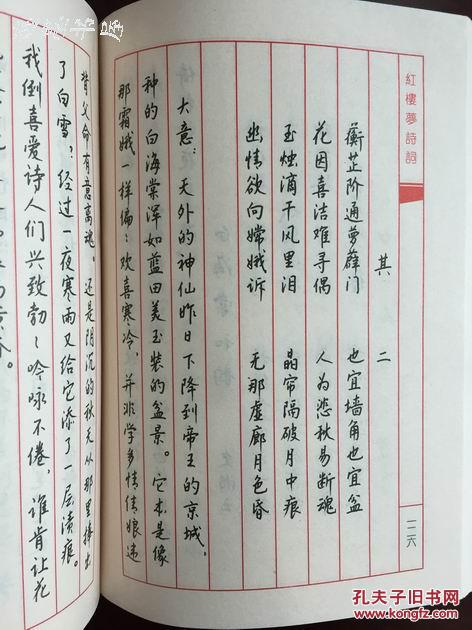 紅樓夢詩詞
一二六
其二
蘅芷阶通萝薜门 也宜墙角也宜盆
花因喜洁难寻偶 人为悲秋易断魂
玉烛滴干风里泪 晶帘隔破月中痕
幽情欲向嫦娥诉 无那虚廊月色昏
大意：天外的神仙昨日下降到帝王的京城，
种的白海棠浑如蓝田美玉装的盆景。它本是像
那霜娥一样偏：欢喜寒冷，并非学多情倩娘违
背父命有意离魂。还是阴沉的秋天从那里捧出
了白雪？经过一夜寒雨又给它添了一层渍痕。
我倒喜爱诗人们兴致勃〻吟咏不倦，谁肯让花
孔夫子旧书网
www.kongfz.com